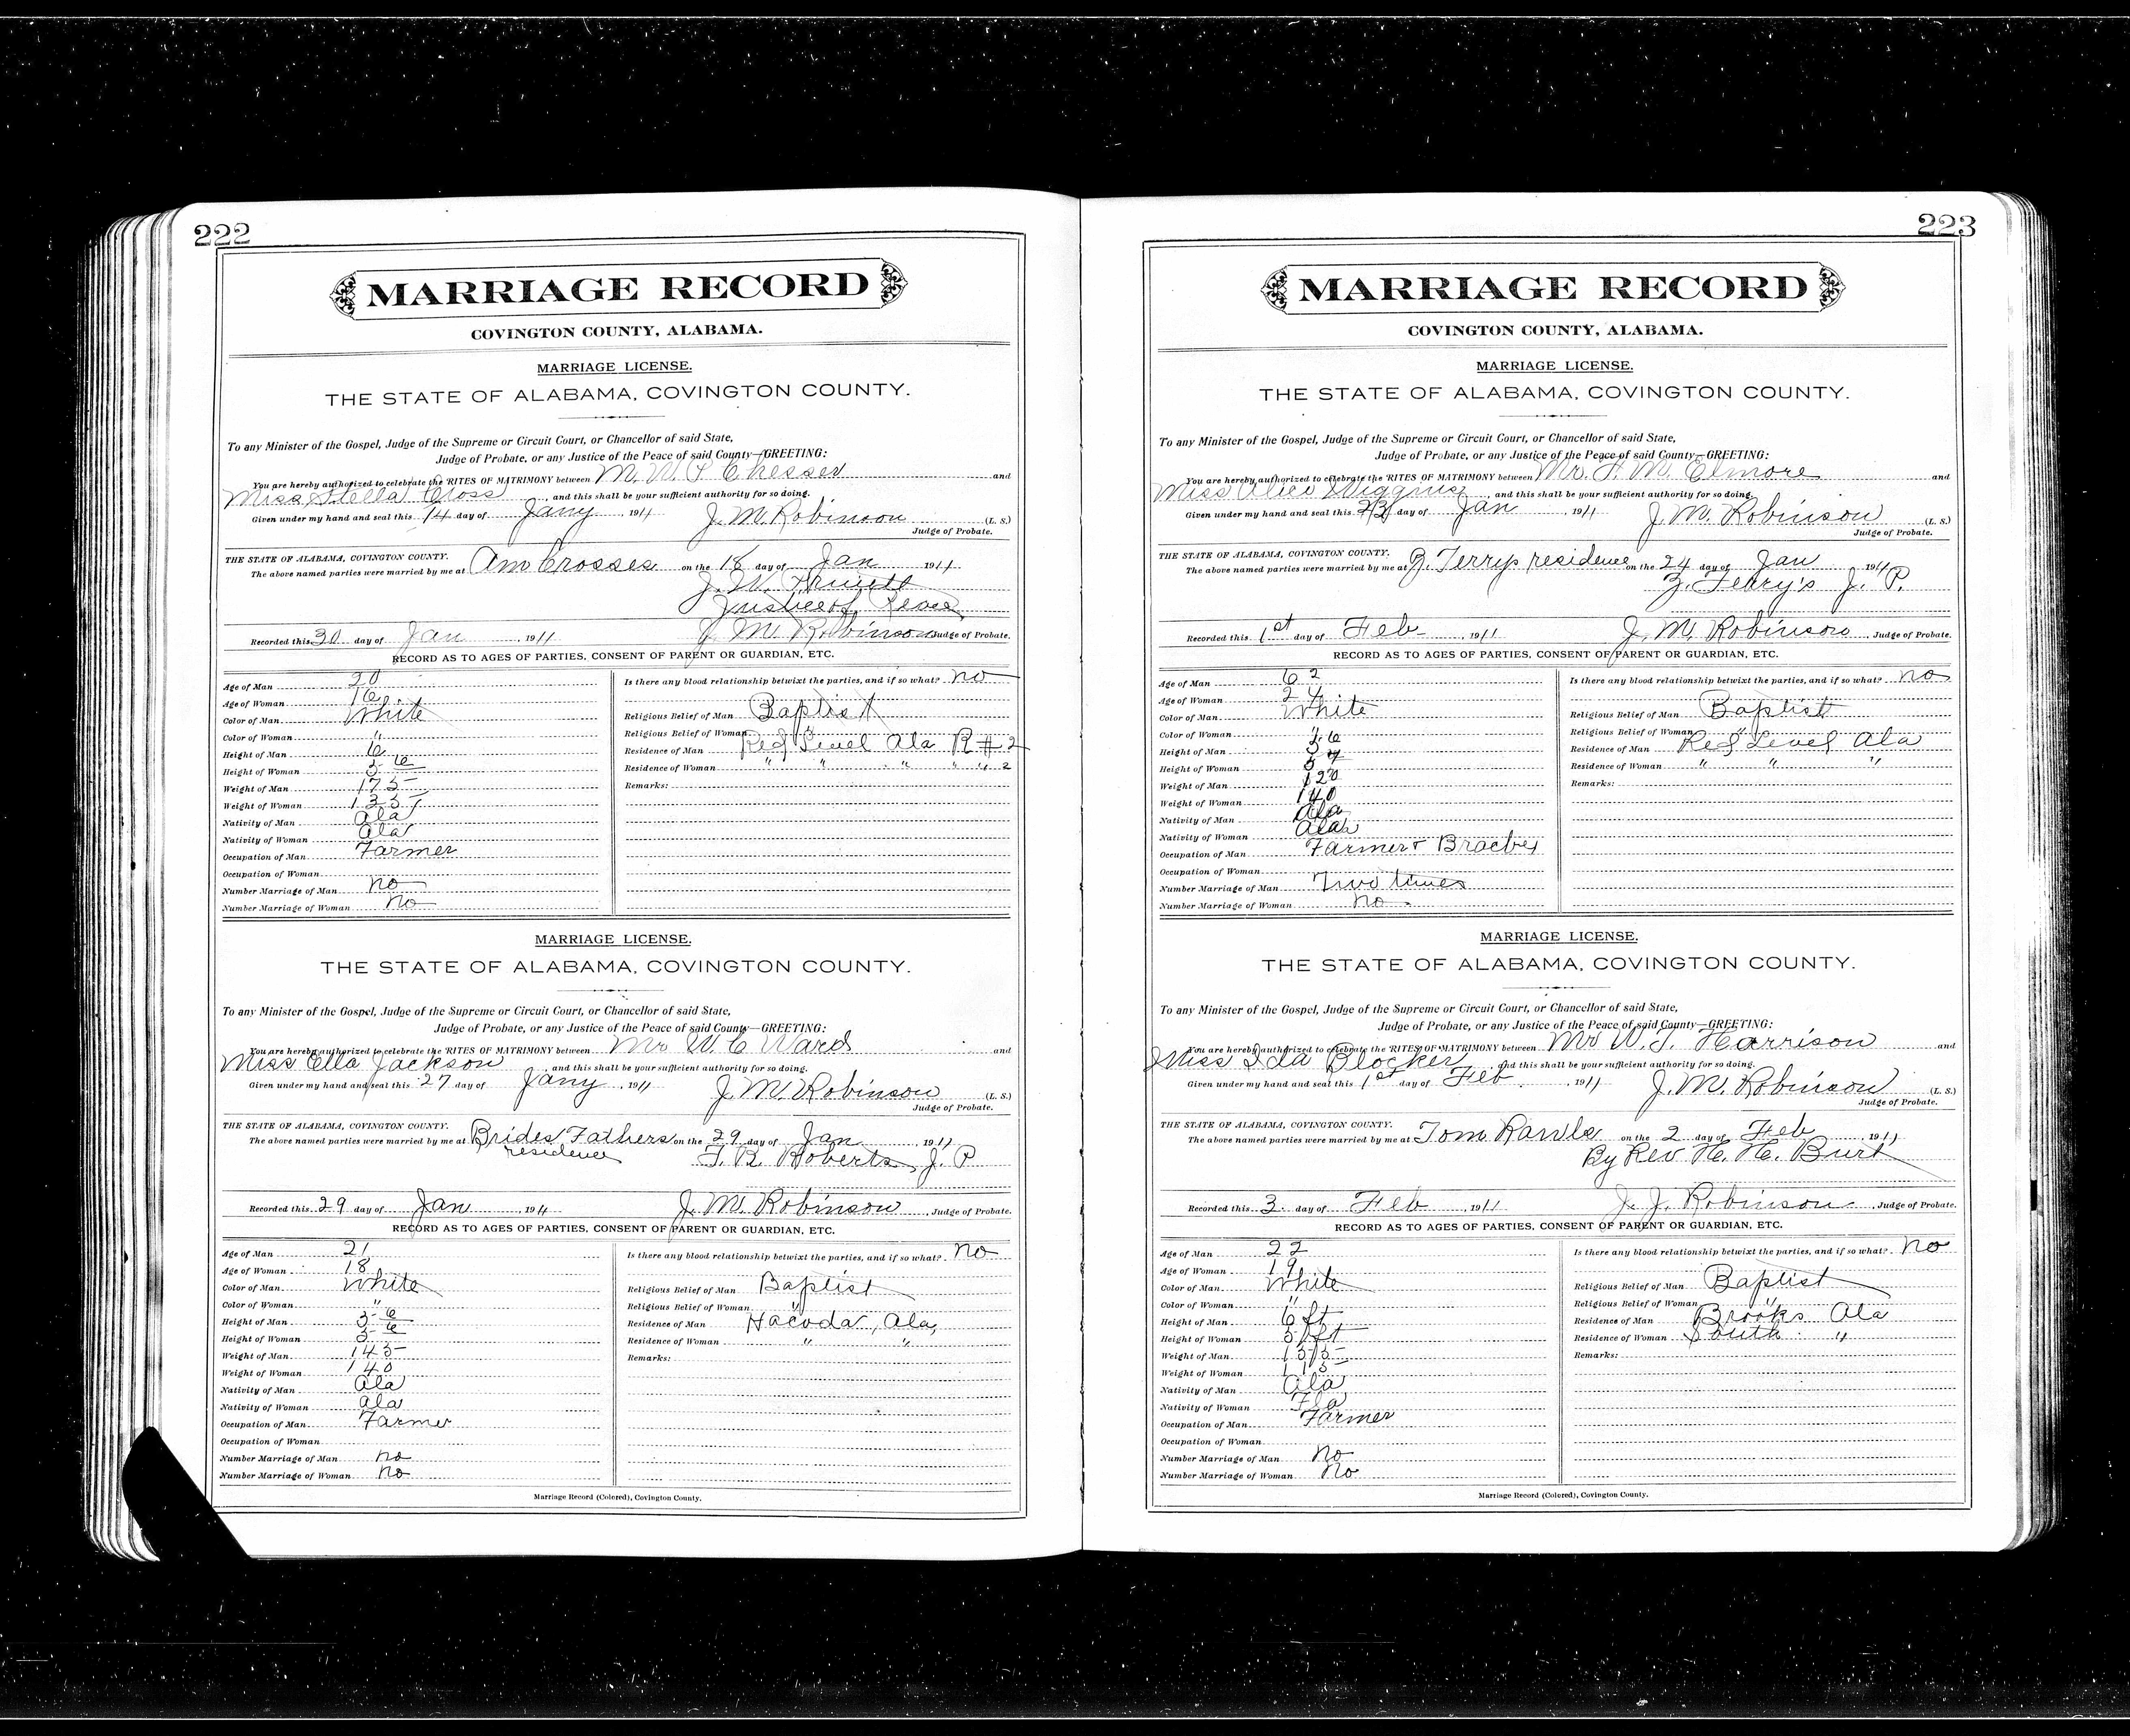 222
MARRIAGE RECORD
COVINGTON COUNTY, ALABAMA.
MARRIAGE LICENSE.
THE STATE OF ALABAMA, COVINGTON COUNTY.
To any Minister of the Gospel, Judge of the Supreme or Circuit Court, or Chancellor of said State,
Judge of Probate, or any Justice of the Peace of said County—GREETING:
You are hereby authorized to celebrate the RITES OF MATRIMONY between M. W. P Chesser and
Miss Stella Cross, and this shall be your sufficient authority for so doing.
Given under my hand and seal this 14 day of Jany 1911 J. M. Robinson (L. S.)
Judge of Probate.
THE STATE OF ALABAMA, COVINGTON COUNTY.
The above named parties were married by me at Am Crosses on the 18 day of Jan 1911
J. W.
Justice of Peace
Recorded this 30 day of Jan, 1911 J. M. Robinson Judge of Probate.
RECORD AS TO AGES OF PARTIES, CONSENT OF PARENT OR GUARDIAN, ETC.
Age of Man 20
Age of Woman 16
Color of Man White
Color of Woman "
Height of Man 6
Height of Woman 5-6
Weight of Man 175
Weight of Woman 135
Nativity of Man Ala
Nativity of Woman Ala
Occupation of Man Farmer
Occupation of Woman
Number Marriage of Man no
Number Marriage of Woman no
Is there any blood relationship betwixt the parties, and if so what? no
Religious Belief of Man Baptist
Religious Belief of Woman "
Residence of Man Red Level Ala R # 2
Residence of Woman " " " " " 2
Remarks:
MARRIAGE LICENSE.
THE STATE OF ALABAMA, COVINGTON COUNTY.
To any Minister of the Gospel, Judge of the Supreme or Circuit Court, or Chancellor of said State,
Judge of Probate, or any Justice of the Peace of said County—GREETING:
You are hereby authorized to celebrate the RITES OF MATRIMONY between Mr W. C Ward and
Miss Ella Jackson, and this shall be your sufficient authority for so doing.
Given under my hand and seal this 27 day of Jany, 1911 J. M. Robinson (L. S.)
Judge of Probate.
THE STATE OF ALABAMA, COVINGTON COUNTY.
The above named parties were married by me at Brides Fathers on the 29 day of Jan 1911
residence J. R. Roberts, J. P
Recorded this 29 day of Jan, 1911 J. M. Robinson, Judge of Probate.
RECORD AS TO AGES OF PARTIES, CONSENT OF PARENT OR GUARDIAN, ETC.
Age of Man 21
Age of Woman 18
Color of Man White
Color of Woman "
Height of Man 5-6
Height of Woman 5-6
Weight of Man 145
Weight of Woman 140
Nativity of Man Ala
Nativity of Woman Ala
Occupation of Man Farmer
Occupation of Woman
Number Marriage of Man no
Number Marriage of Woman no
Is there any blood relationship betwixt the parties, and if so what? no
Religious Belief of Man Baptist
Religious Belief of Woman "
Residence of Man Hacoda, Ala,
Residence of Woman " "
Remarks:
Marriage Record (Colored), Covington County.
223
MARRIAGE RECORD
COVINGTON COUNTY, ALABAMA.
MARRIAGE LICENSE.
THE STATE OF ALABAMA, COVINGTON COUNTY.
To any Minister of the Gospel, Judge of the Supreme or Circuit Court, or Chancellor of said State,
Judge of Probate, or any Justice of the Peace of said County—GREETING:
You are hereby authorized to celebrate the RITES OF MATRIMONY between Mr. F. M. Elmore and
Miss Alice Wiggins, and this shall be your sufficient authority for so doing.
Given under my hand and seal this 23 day of Jan, 1911 J. M. Robinson (L. S.)
Judge of Probate.
THE STATE OF ALABAMA, COVINGTON COUNTY.
The above named parties were married by me at Z. Terrys residence on the 24 day of Jan 1911
Z. Terry's J. P.
Recorded this 1st day of Feb, 1911 J. M. Robinson, Judge of Probate.
RECORD AS TO AGES OF PARTIES, CONSENT OF PARENT OR GUARDIAN, ETC.
Age of Man 62
Age of Woman 24
Color of Man White
Color of Woman "
Height of Man 5.6
Height of Woman 5 4
Weight of Man 120
Weight of Woman 140
Nativity of Man Ala
Nativity of Woman Ala
Occupation of Man Farmer &
Occupation of Woman
Number Marriage of Man Two times
Number Marriage of Woman no
Is there any blood relationship betwixt the parties, and if so what? no
Religious Belief of Man Baptist
Religious Belief of Woman "
Residence of Man Red Level Ala
Residence of Woman " " "
Remarks:
MARRIAGE LICENSE.
THE STATE OF ALABAMA, COVINGTON COUNTY.
To any Minister of the Gospel, Judge of the Supreme or Circuit Court, or Chancellor of said State,
Judge of Probate, or any Justice of the Peace of said County—GREETING:
You are hereby authorized to celebrate the RITES OF MATRIMONY between Mr W. J. Harrison and
Miss Ida Blocker, and this shall be your sufficient authority for so doing.
Given under my hand and seal this 1st day of Feb, 1911 J. M. Robinson (L. S.)
Judge of Probate.
THE STATE OF ALABAMA, COVINGTON COUNTY.
The above named parties were married by me at Tom Rawls on the 2 day of Feb, 1911
By Rev H. H. Burt
Recorded this 3 day of Feb, 1911 J. J. Robinson, Judge of Probate.
RECORD AS TO AGES OF PARTIES, CONSENT OF PARENT OR GUARDIAN, ETC.
Age of Man 22
Age of Woman 19
Color of Man White
Color of Woman "
Height of Man 6 ft
Height of Woman 5 ft
Weight of Man 155
Weight of Woman 115
Nativity of Man Ala
Nativity of Woman Fla
Occupation of Man Farmer
Occupation of Woman
Number Marriage of Man No
Number Marriage of Woman No
Is there any blood relationship betwixt the parties, and if so what? no
Religious Belief of Man Baptist
Religious Belief of Woman "
Residence of Man Brooks Ala
Residence of Woman South "
Remarks:
Marriage Record (Colored), Covington County.